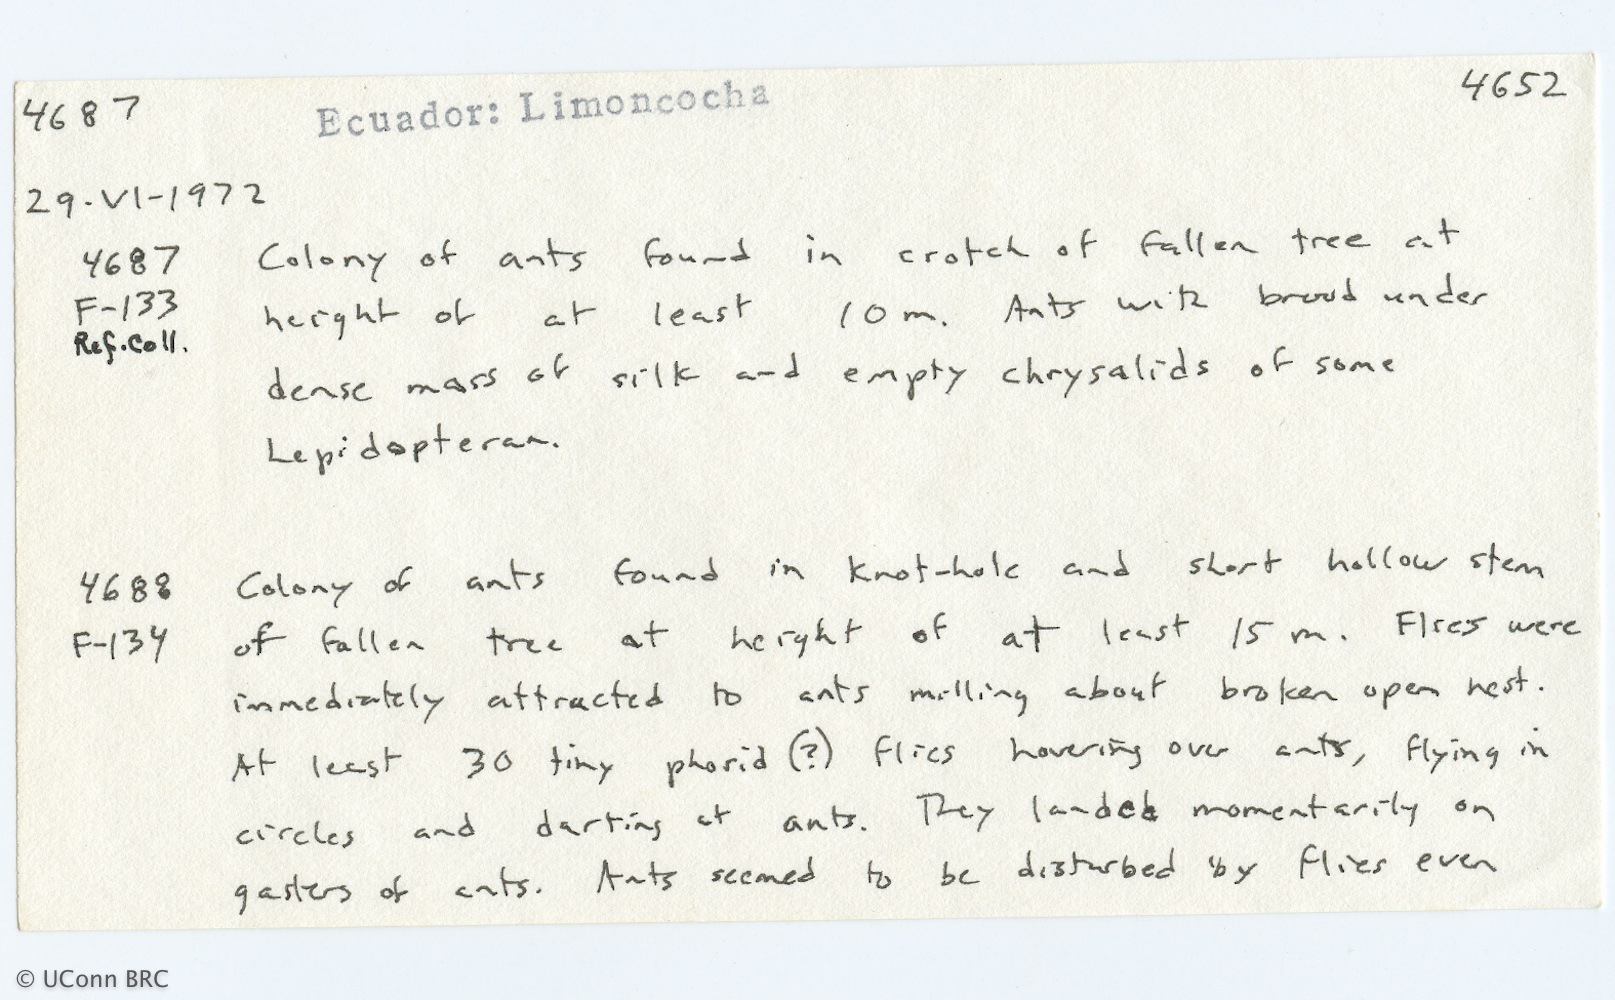 4687 Ecuador: Limoncocha 4652
29-VI-1972
4687 Colony of ants found in crotch of fallen tree at
F-133 height of at least 10 m. Ants with brood under
Ref. Coll.
dense mass of silk and empty chrysalids of some
Lepidopteran.
4688 Colony of ants found in knot-hole and short hollow stem
F-134 of fallen tree at height of at least 15 m. Flies were
immediately attracted to ants milling about broken open nest.
At least 30 tiny phorid (?) flies hovering over ants, flying in
circles and darting at ants. They landed momentarily on
gasters of ants. Ants seemed to be disturbed by flies even
© UConn BRC